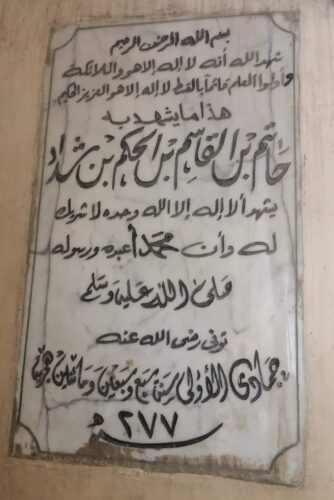 بسم الله الرحمن الرحيم
شهد الله أنه لا إله إلا هو والملائكة
وأولوا العلم قائما بالقسط لا إله إلا هو العزيز الحكيم
هذا ما يشهد به
حاتم بن القاسم بن الحكم بن شداد
يشهد ألا إله إلا الله وحده لا شريك
له وأن محمدا عبده ورسوله
صلى الله عليه وسلم
توفى رضى الله عنه
جمادى الأولى سنة سبع وسبعين ومائتين هجرية
٢٧٧ هـ